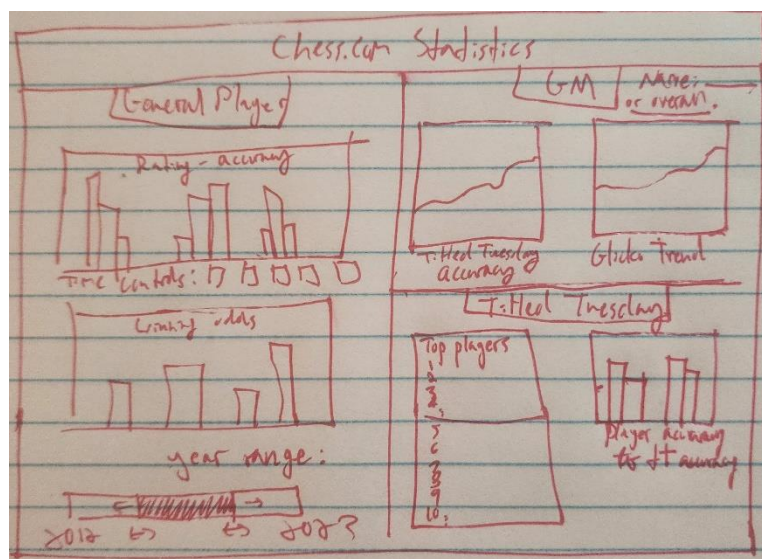 Chess.com Statistics
General Player
Rating - accuracy
Time controls:
Winning odds
year range:
2012
2023
GM
Name:
or overall.
Titled Tuesday
accuracy
Glicko Trend
Titled Tuesday
Top players
1
2
3
4.
5
6
7
8
9
10.
player accuracy
accuracy